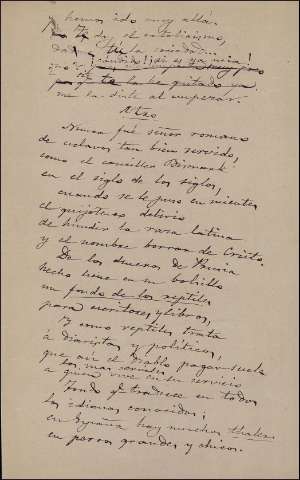 hemos ido muy allá.
de, el catolicismo,
la caridad...
¡ya mía!
la ha quitado ya
me la diste al empezar.
Otro
Nunca fué señor romano
de esclavos tan bien servido,
como el canciller Bismark
en el siglo de los siglos,
cuando se le puso en mientes
el quijotesco delirio
de hundir la raza latina
y el nombre borrar de Cristo.
De los dineros de Prusia
hecho tiene en su bolsillo
un fondo de los reptiles
para escritores y libros,
Y como reptiles trata
á diaristas y políticos,
que aun el diablo pagar suele
con mas
á quien vive en su servicio
Fondo qe traduce en todos
los idiomas conocidos;
en España hay muchos
en perros grandes y chicos.